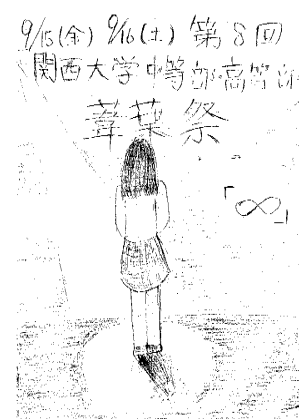 9/15(金) 9/16(土) 第8回
関西大学中等部・高等部
葦葉祭
「∞」